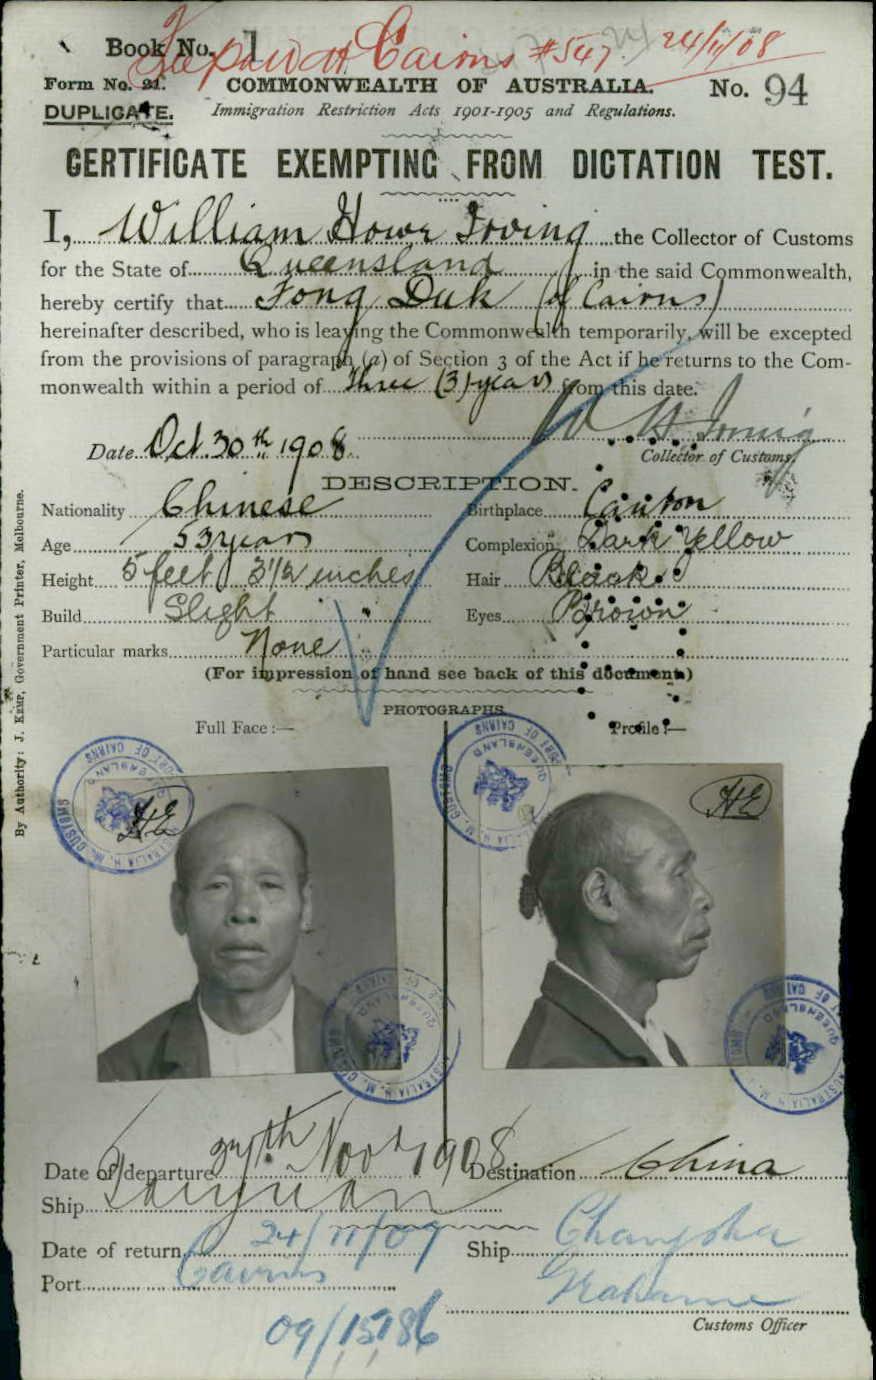 Book No. 1 Cairns #547 24/11/08
Form No. 21. COMMONWEALTH OF AUSTRALIA. No. 94
DUPLICATE. Immigration Restriction Acts 1901-1905 and Regulations.
CERTIFICATE EXEMPTING FROM DICTATION TEST.
I, William Howe Irving the Collector of Customs
for the State of Queensland in the said Commonwealth,
hereby certify that Fong Duk (of Cairns)
hereinafter described, who is leaving the Commonwealth temporarily, will be excepted
from the provisions of paragraph (a) of Section 3 of the Act if he returns to the Com-
monwealth within a period of Three (3) years from this date.
W H Irving
Date Oct. 30th 1908. Collector of Customs.
DESCRIPTION.
Nationality Chinese Birthplace Canton
Age 53 years Complexion Dark Yellow
Height 5 feet 3 1/2 inches Hair Black
Build Slight Eyes Brown
Particular marks None
(For impression of hand see back of this document.)
PHOTOGRAPHS.
Full Face:— Profile:—
HE HE
Date of departure 27th Nov 1908 Destination China
Ship Taiyuan
Date of return 24/11/09 Ship Changsha
Port Cairns
09/15786
Customs Officer
By Authority: J. KEMP, Government Printer, Melbourne.